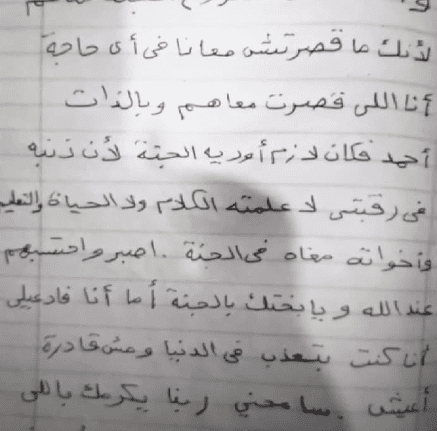 لأنك ما قصرتش معانا فى أى حاجة
أنا اللى قصرت معاهم وبالذات
أحمد فكان لازم أوديه الجنة لأن ذنبه
فى رقبتى لا علمته الكلام ولا الحياة والتعليم
وأخواته معاه فى الجنة . اصبر واحتسبهم
عند الله و يابختك بالجنة أما أنا فادعيلى
أنا كنت بتعذب فى الدنيا ومش قادرة
أعيش . سامحني ربنا يكرمك باللى